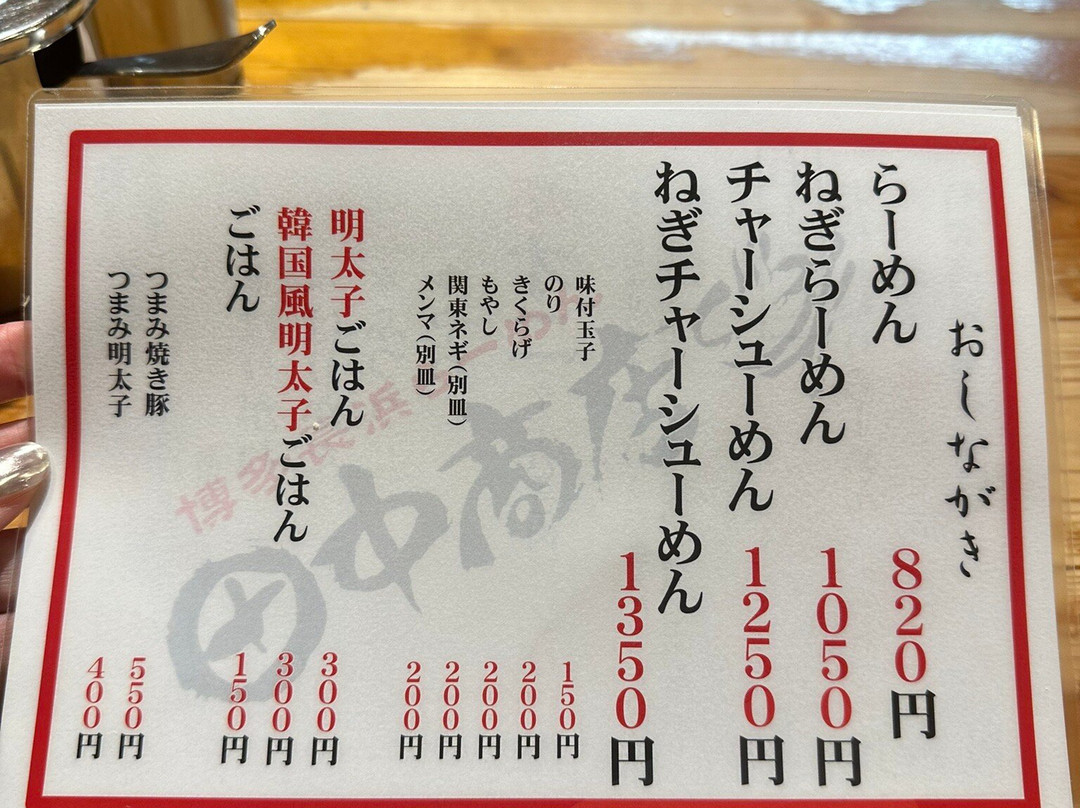 おしながき
らーめん 820円
ねぎらーめん 1050円
チャーシューめん 1250円
ねぎチャーシューめん 1350円
味付玉子
のり
きくらげ
もやし
関東ネギ(別皿)
メンマ(別皿)
150円
200円
200円
200円
200円
明太子ごはん 300円
韓国風明太子ごはん 300円
ごはん 150円
つまみ焼き豚 550円
つまみ明太子 400円
博多長浜
田中商店